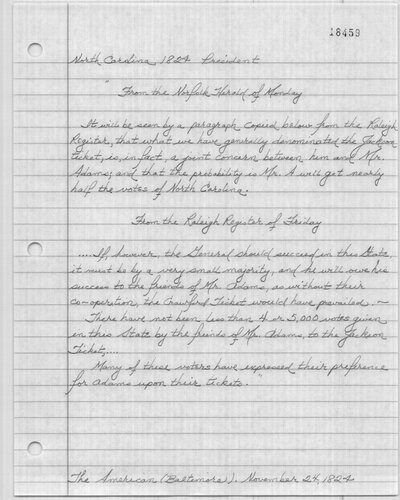 18459
North Carolina 1824 President
"From the Norfolk Herald of Monday
It will be seen by a paragraph copied below from the Raleigh
Register, that what we have generally denominated the Jackson
ticket, is, in fact, a joint concern between him and Mr.
Adams; and that the probability is Mr. A will get nearly
half the votes of North Carolina.
From the Raleigh Register of Friday
....If, however, the General should succeed in this State,
it must be by a very small majority, and he will owe his
success to the friends of Mr. Adams, as without their
co-operation, the Crawford Ticket would have prevailed. ~
There have not been less than 4 or 5,000 votes given
in this State by the friends of Mr. Adams, to the Jackson
Ticket,....
Many of these voters have expressed their preference
for Adams upon their tickets."
The American (Baltimore). November 24, 1824